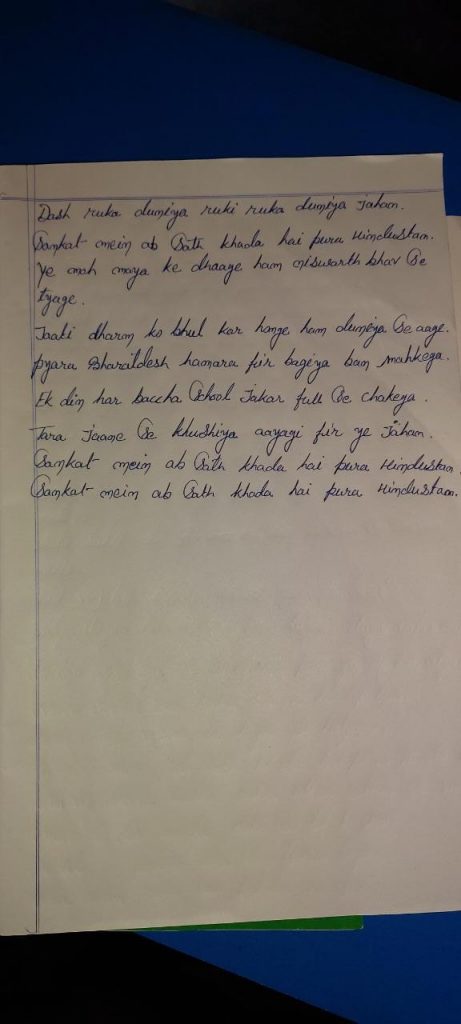 Dash ruka duniya ruki ruka duniya jahan.
Sankat mein ab Sath khada hai pura Hindustan.
Ye moh maya ke dhaage ham niswarth bhav Se
tyage.
Jaati dharm ko bhul kar honge ham duniya Se aage.
pyara Bharatdesh hamara fir bagiya ban mahkega.
Ek din har baccha School Jakar full Se chakega.
Tara Jaane Se khushiya aayagi fir ye Jahan.
Sankat mein ab Sath khada hai pura Hindustan.
Sankat mein ab Sath khada hai pura Hindustan.